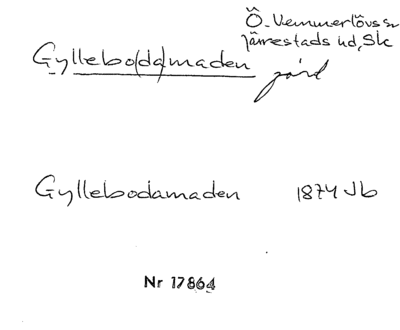 Ö. Vemmerlövs sn
Järrestads hd, Sk
Gyllebo(da)maden
jord
Gyllebodamaden 1874 Jb
Nr 17864